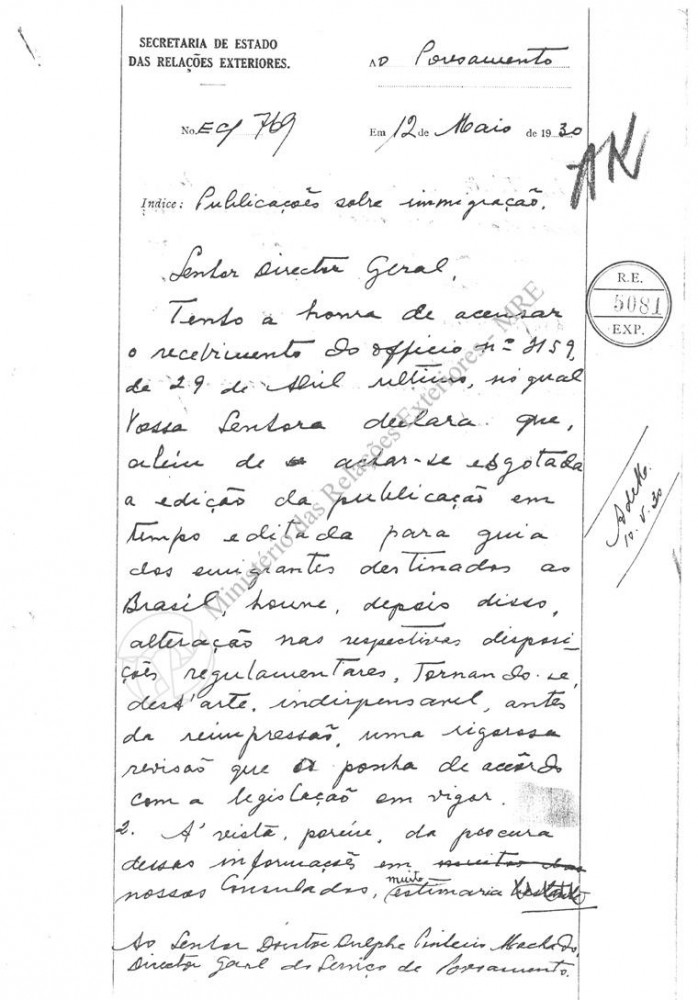 SECRETARIA DE ESTADO
DAS RELAÇÕES EXTERIORES.
AO Povoamento
No. EC/ 769
Em 12 de Maio de 1930
Indice: Publicações sobre immigração.
Senhor Director Geral,
Tenho a honra de accusar
o recebimento do officio nº 2159,
de 29 de Abril ultimo, no qual
Vossa Senhoria declara que,
além de achar-se esgotada
a edição da publicação em
tempo editada para guia
dos emigrantes destinados ao
Brasil, houve, depois disso,
alteração nas respectivas disposi-
ções regulamentares, tornando-se,
dest'arte, indispensavel, antes
da reimpressão, uma rigorosa
revisão que a ponha de accôrdo
com a legislação em vigor.
2. A' vista, porém, da procura
dessas informações em muitos dos
nossos Consulados, muito estimaria
Ao Senhor Doutor Dulphe Pinheiro Machado,
Director Geral do Serviço de Povoamento.
R.E.
5081
EXP.
10.V.30
Ministério das Relações Exteriores - MRE